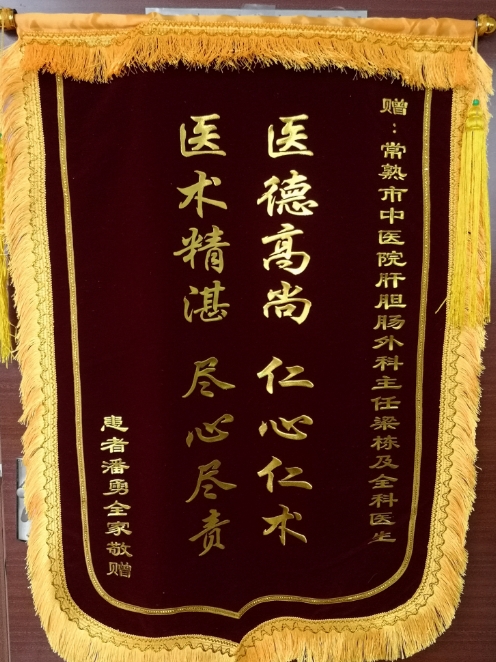 赠：常熟市中医院肝胆肠外科主任梁栋及全科医生
医德高尚 仁心仁术
医术精湛 尽心尽责
患者潘勇全家敬赠